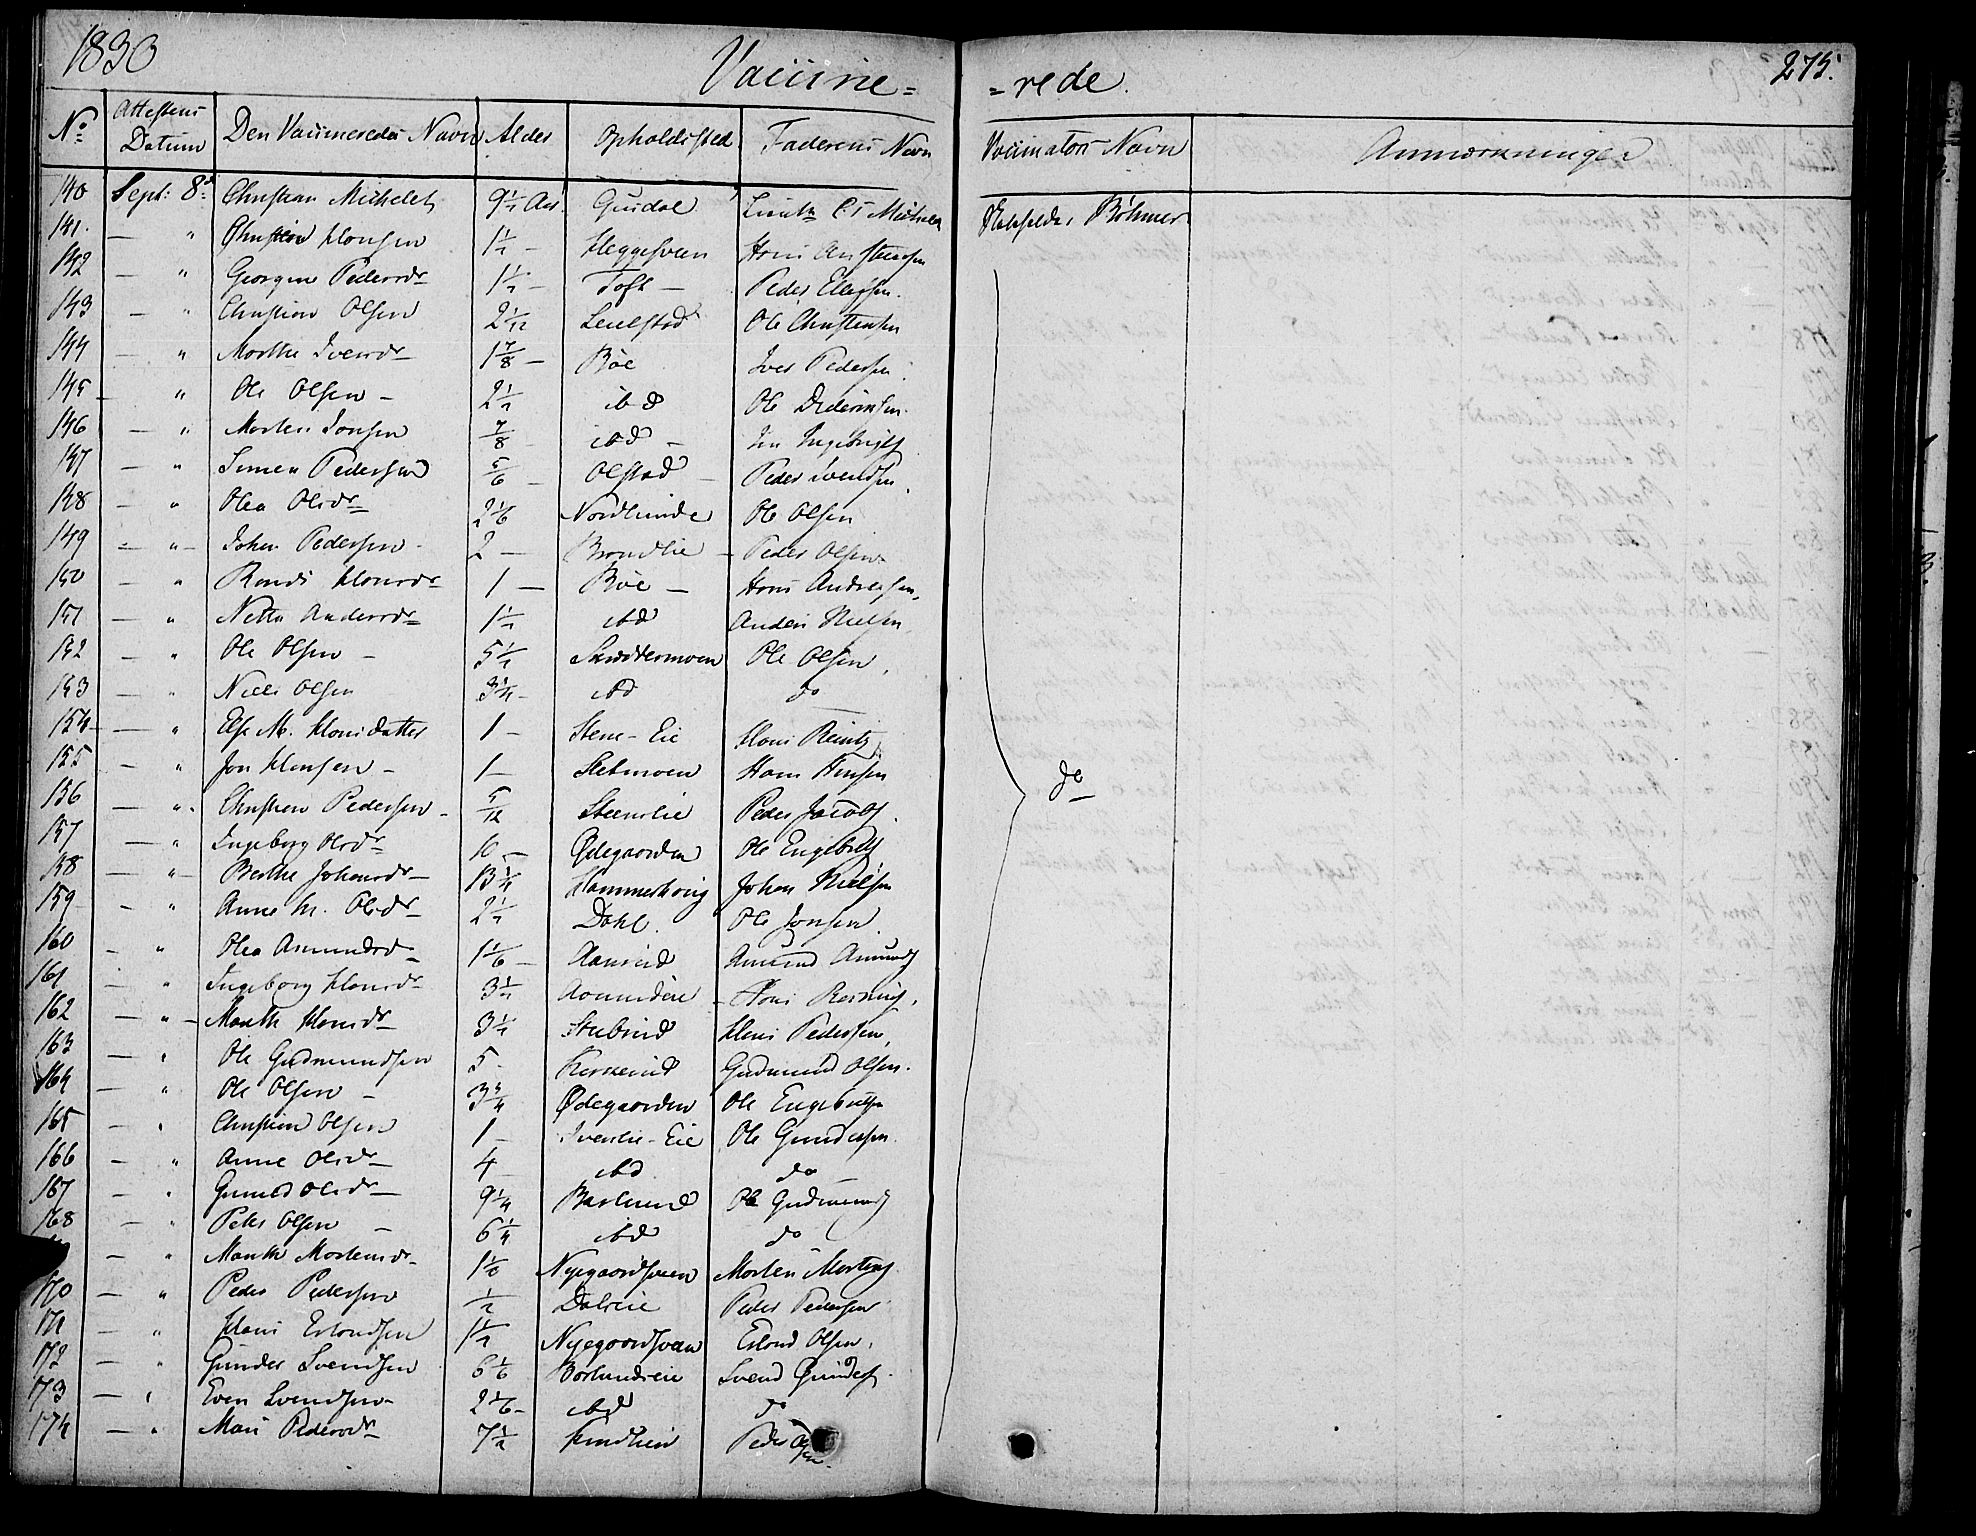 1830 Vaccine= =rede. 275.
No Attestens Datum Den Vaccineredes Navn Alder Opholdssted Faderens Navn Vaccinators Navn Anmærkninger
140 Sept: 8d Christian Michelet 9 1/2 Aar. Gusdal Lieutn Michelet Böhmer
141. — " Christian Hansen 1 1/2 — Heggesveen Hans
142 — " Georgine Pedersdr 1 1/2 — Toft — Peder Ellefsen.
143 — " Christian Olsen 2 1/12 Ole Christensen
144 — " Marthe Iversdr 1 7/8 — Böe Iver Pedersen.
145 — " Ole Olsen — 2 1/2 ibd Ole Dideriksen.
146 — " Morten Jonsen 7/8 — ibd — Jon Ingebrigts
147 — " Simen Pedersen 5/6 — Olstad — Peder Svendsen.
148 — " Olea Olsdr 2 1/6 Nordlunde Ole Olsen
149 — " — Johan Pedersen — 2 — Brandlie — Peder Olsen
150 — " Randi Hansdr 1 — Böe — Hans Andreasen,
151 — " Netta Andersdr 1 1/2 ibd Anders Nielsen
152 — " Ole Olsen — 5 1/2 Ole Olsen,
153 — " Niels Olsen 3 3/4 — ibd do
154 — " Else M. Hansdatter 1 — Stene-Eie Hans Reintz
155 — " Jon Hansen — 1 — Hans Hansen
156 — " Christian Pedersen — 5/12 Steenslie Peder Jacobs. do
157 — " Ingeborg Olsdr 10 — Ødegaarden Ole Engebrets
158 — " — Berthe Johansdr — 13 1/4 Hammershoug Johan Nielsen
159 — " Anne M. Olsdr 2 1/2 Dahl. Ole Jonsen.
160 — " Olea Amundsdr 1 1/6 — Amund Amunds
161 " Ingeborg Hansdr 3 1/2 — Hans
162 — " — Marith Hansdr 3 1/4 Stubrud Hans Pedersen,
163 — " Ole Gudmundsen 5 — Gudmund Olsen.
164 — " Ole Olsen — 3 3/4 Ødegaarden Ole Engebretsen
165 — " Christian Olsen 1 — Svenlie-Eie Ole Gundersen.
166 — " Anne Olsdr 4 — ibd do
167 — " Gunild Olsdr — 9 1/4 Barlund Ole Gudmunds
168 — " Peter Olsen — 6 1/4 ibd do
— " Marith Mortensdr 1 1/6 Nyegaardsveen Morten Mortens.
170 — " Peder Pedersen 1/2 Dalseie Peder Pedersen
171 — " Hans Erlandsen 1 1/2 Nyegaardsveen Erland Olsen.
172 — " Gunder Svendsen 6 1/6 Borlundseie Svend Gunders.
173 — " Even Svendsen 2 1/6 — ibd do
174 — " Mari Pedersdr 7 1/2 Peder